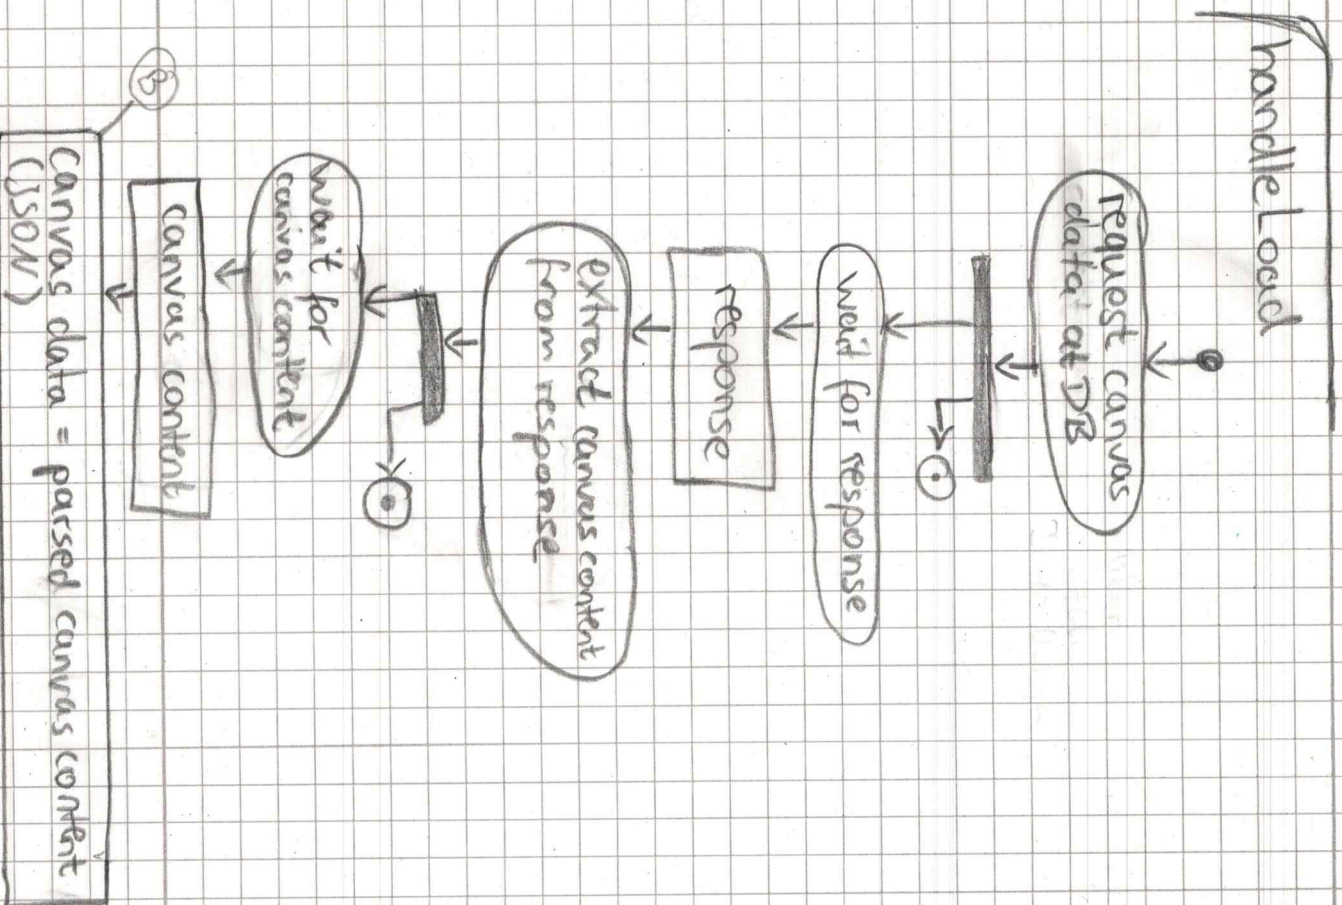 handleLoad
request canvas
data at DB
wait for response
response
extract canvas content
from response
wait for
canvas content
canvas content
B
canvas data = parsed canvas content
(JSON)